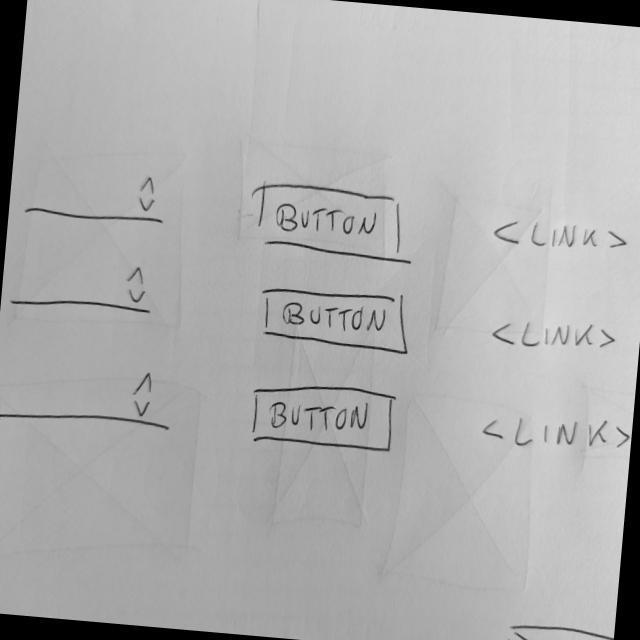 BUTTON <LINK>
BUTTON <LINK>
BUTTON <LINK>